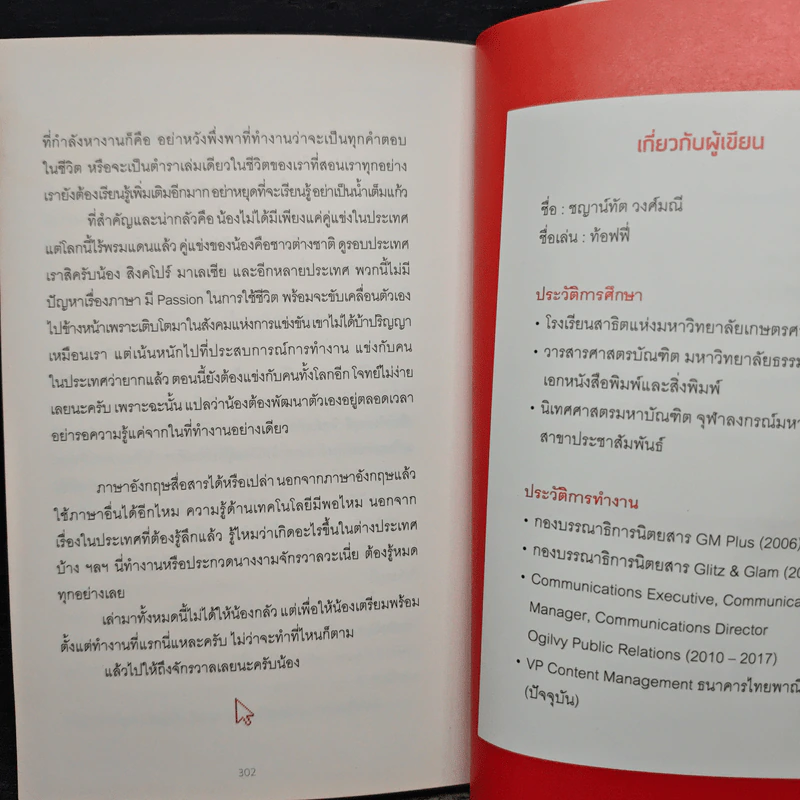 ที่กำลังหางานก็คือ อย่าหวังพึ่งพาที่ทำงานว่าจะเป็นทุกคำตอบ
ในชีวิต หรือจะเป็นตำราเล่มเดียวในชีวิตของเราที่สอนเราทุกอย่าง
เรายังต้องเรียนรู้เพิ่มเติมอีกมาก อย่าหยุดที่จะเรียนรู้ อย่าเป็นน้ำเต็มแก้ว
ที่สำคัญและน่ากลัวคือ น้องไม่ได้มีเพียงแค่คู่แข่งในประเทศ
แต่โลกนี้ไร้พรมแดนแล้ว คู่แข่งของน้องคือชาวต่างชาติ ดูรอบประเทศ
เราสิครับน้อง สิงคโปร์ มาเลเซีย และอีกหลายประเทศ พวกนี้ไม่มี
ปัญหาเรื่องภาษา มี Passion ในการใช้ชีวิต พร้อมจะขับเคลื่อนตัวเอง
ไปข้างหน้าเพราะเติบโตมาในสังคมแห่งการแข่งขัน เขาไม่ได้บ้าปริญญา
เหมือนเรา แต่เน้นหนักไปที่ประสบการณ์การทำงาน แข่งกับคน
ในประเทศว่ายากแล้ว ตอนนี้ยังต้องแข่งกับคนทั้งโลกอีก โจทย์ไม่ง่าย
เลยนะครับ เพราะฉะนั้น แปลว่าน้องต้องพัฒนาตัวเองอยู่ตลอดเวลา
อย่ารอความรู้แค่จากในที่ทำงานอย่างเดียว
ภาษาอังกฤษสื่อสารได้หรือเปล่า นอกจากภาษาอังกฤษแล้ว
ใช้ภาษาอื่นได้อีกไหม ความรู้ด้านเทคโนโลยีมีพอไหม นอกจาก
เรื่องในประเทศที่ต้องรู้ลึกแล้ว รู้ไหมว่าเกิดอะไรขึ้นในต่างประเทศ
บ้าง ฯลฯ นี่ทำงานหรือประกวดนางงามจักรวาลวะเนี่ย ต้องรู้หมด
ทุกอย่างเลย
เล่ามาทั้งหมดนี้ไม่ได้ให้น้องกลัว แต่เพื่อให้น้องเตรียมพร้อม
ตั้งแต่ทำงานที่แรกนี่แหละครับ ไม่ว่าจะทำที่ไหนก็ตาม
แล้วไปให้ถึงจักรวาลเลยนะครับน้อง
302
เกี่ยวกับผู้เขียน
ชื่อ : ชญาน์ทัต วงศ์มณี
ชื่อเล่น : ท้อฟฟี่
ประวัติการศึกษา
• โรงเรียนสาธิตแห่งมหาวิทยาลัยเกษตรศ
• วารสารศาสตรบัณฑิต มหาวิทยาลัยธรรม
เอกหนังสือพิมพ์และสิ่งพิมพ์
• นิเทศศาสตรมหาบัณฑิต จุฬาลงกรณ์มหา
สาขาประชาสัมพันธ์
ประวัติการทำงาน
• กองบรรณาธิการนิตยสาร GM Plus (2006)
• กองบรรณาธิการนิตยสาร Glitz & Glam (20
• Communications Executive, Communica
Manager, Communications Director
Ogilvy Public Relations (2010 – 2017)
• VP Content Management ธนาคารไทยพาณิ
(ปัจจุบัน)